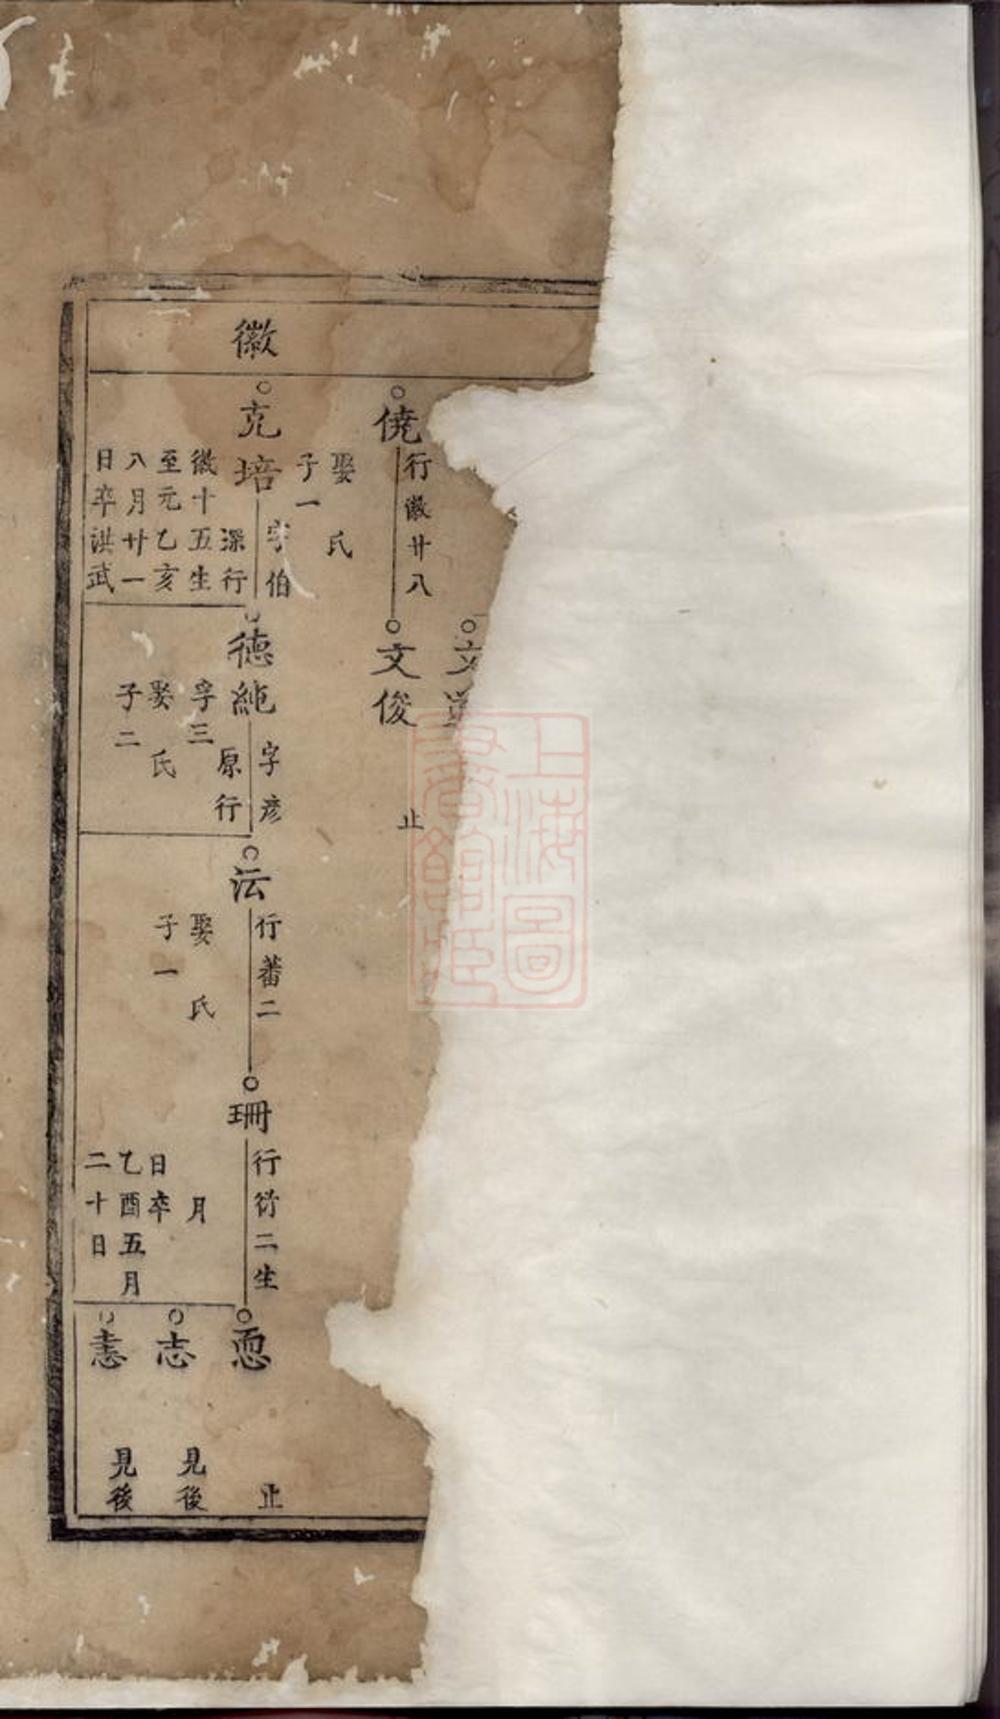 徽
文
僥
行徽廿八
娶 氏
子一
文俊
止
克培
字伯
深行
徽十五生
至元乙亥
八月廿一
日卒洪武
德純
字彥
原行
孚三
娶 氏
子二
沄
行蕃二
娶 氏
子一
珊
行衍二生
月
日卒
乙酉五月
二十日
恧
止
志
見後
恚
見後
上海圖書館藏